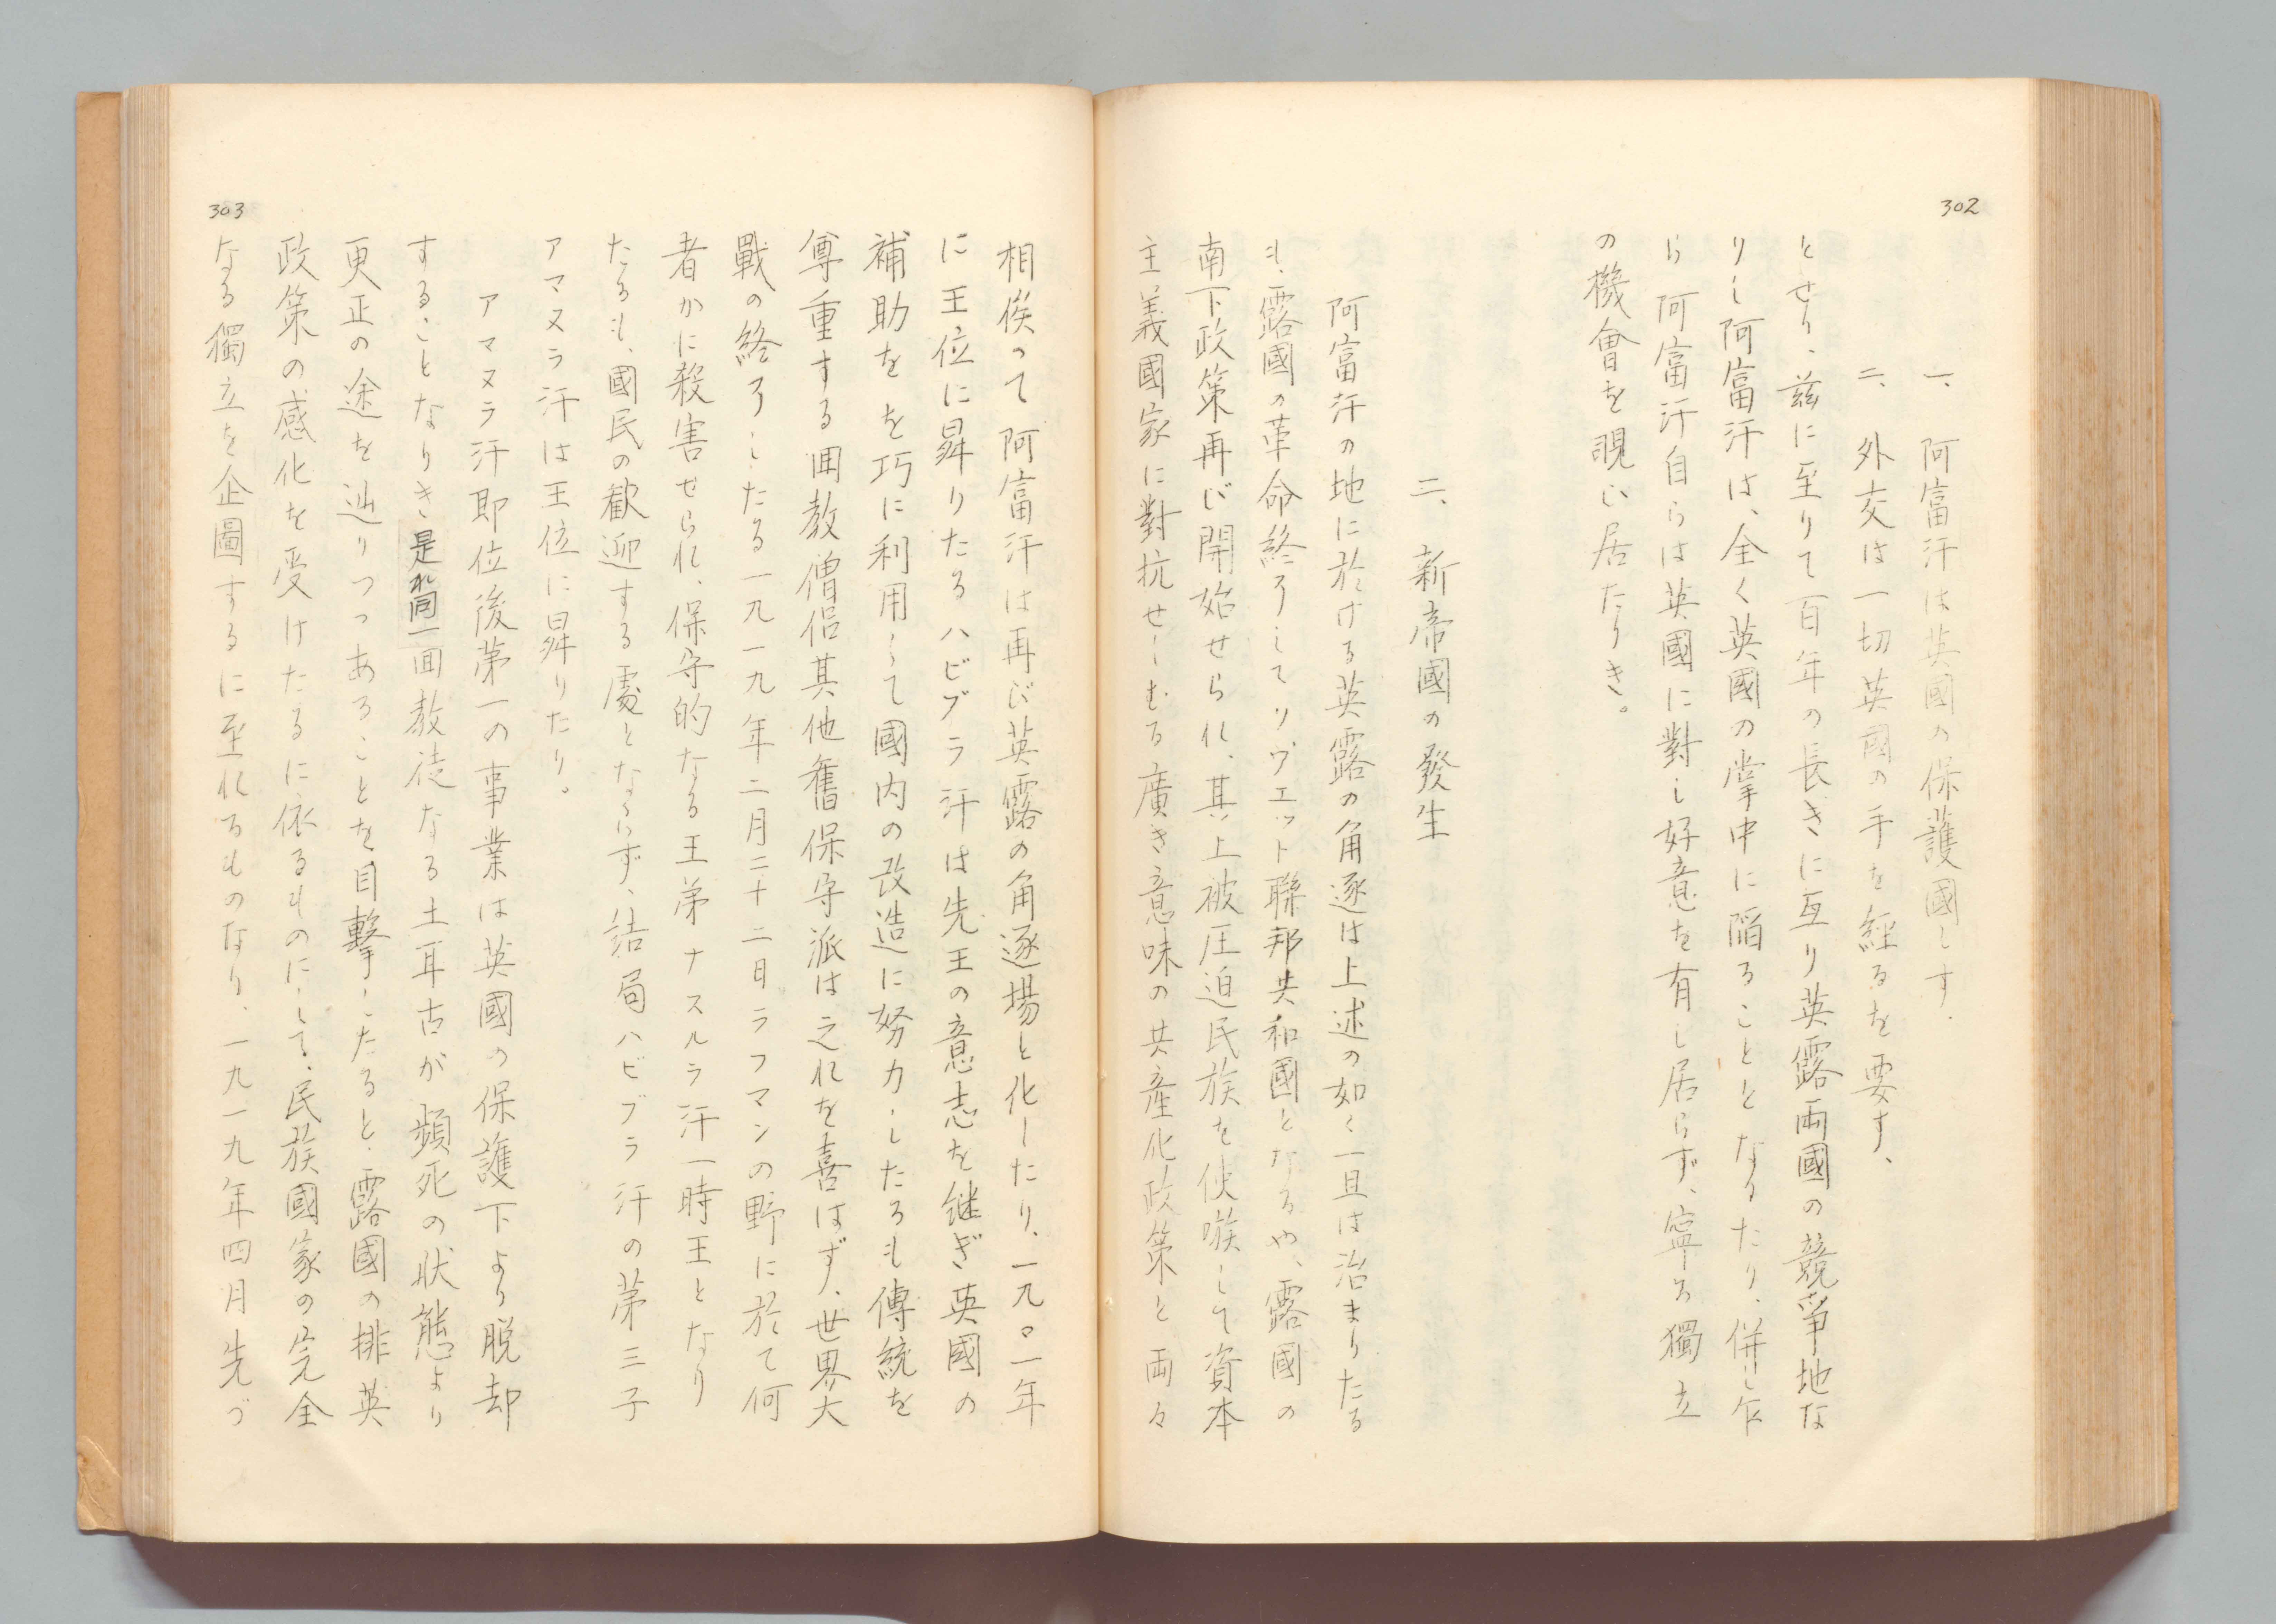 302
一、阿富汗は英國の保護國とす、
二、外交は一切英國の手を經るを要す、
とせり、茲に至りて百年の長きに亙り英露兩國の競爭地な
りし阿富汗は、全く英國の掌中に陷ることとなるたり、併し乍
ら阿富汗自らは英國に對し好意を有し居らず、寧ろ獨立
の機會を覗ひ居たりき。
二、新帝國の發生
阿富汗の地に於ける英露の角逐は上述の如く一旦は治まりたる
も、露國の革命終了してソヴエット聯邦共和國となるや、露國の
南下政策再び開始せられ、其上被圧迫民族を使嗾して資本
主義國家に對抗せしむる廣き意味の共產化政策と兩々
相俟つて阿富汗は再び英露の角逐場と化したり、一九〇一年
に王位に昇りたるハビブラ汗は先王の意志を継ぎ英國の
補助をを巧に利用して國内の改造に努力したるも傳統を
尊重する囬教僧侶其他舊保守派は之れを喜ばず、世界大
戰の終了したる一九一九年二月二十二日ラフマンの野に於て何
者かに殺害せられ、保守的なる王弟ナスルラ汗一時王となり
たるも、國民の歡迎する處とならず、結局ハビブラ汗の第三子
アマヌラ汗は王位に昇りたり。
アマヌラ汗即位後第一の事業は英國の保護下より脱却
することなりき是れ同一囬教徒なる土耳古が頻死の状態より
更正の途を辿りつつあることを目擊したると、露國の排英
政策の感化を受けたるに依るものにして、民族國家の完全
なる獨立を企圖するに至れるものなり、一九一九年四月先づ
303